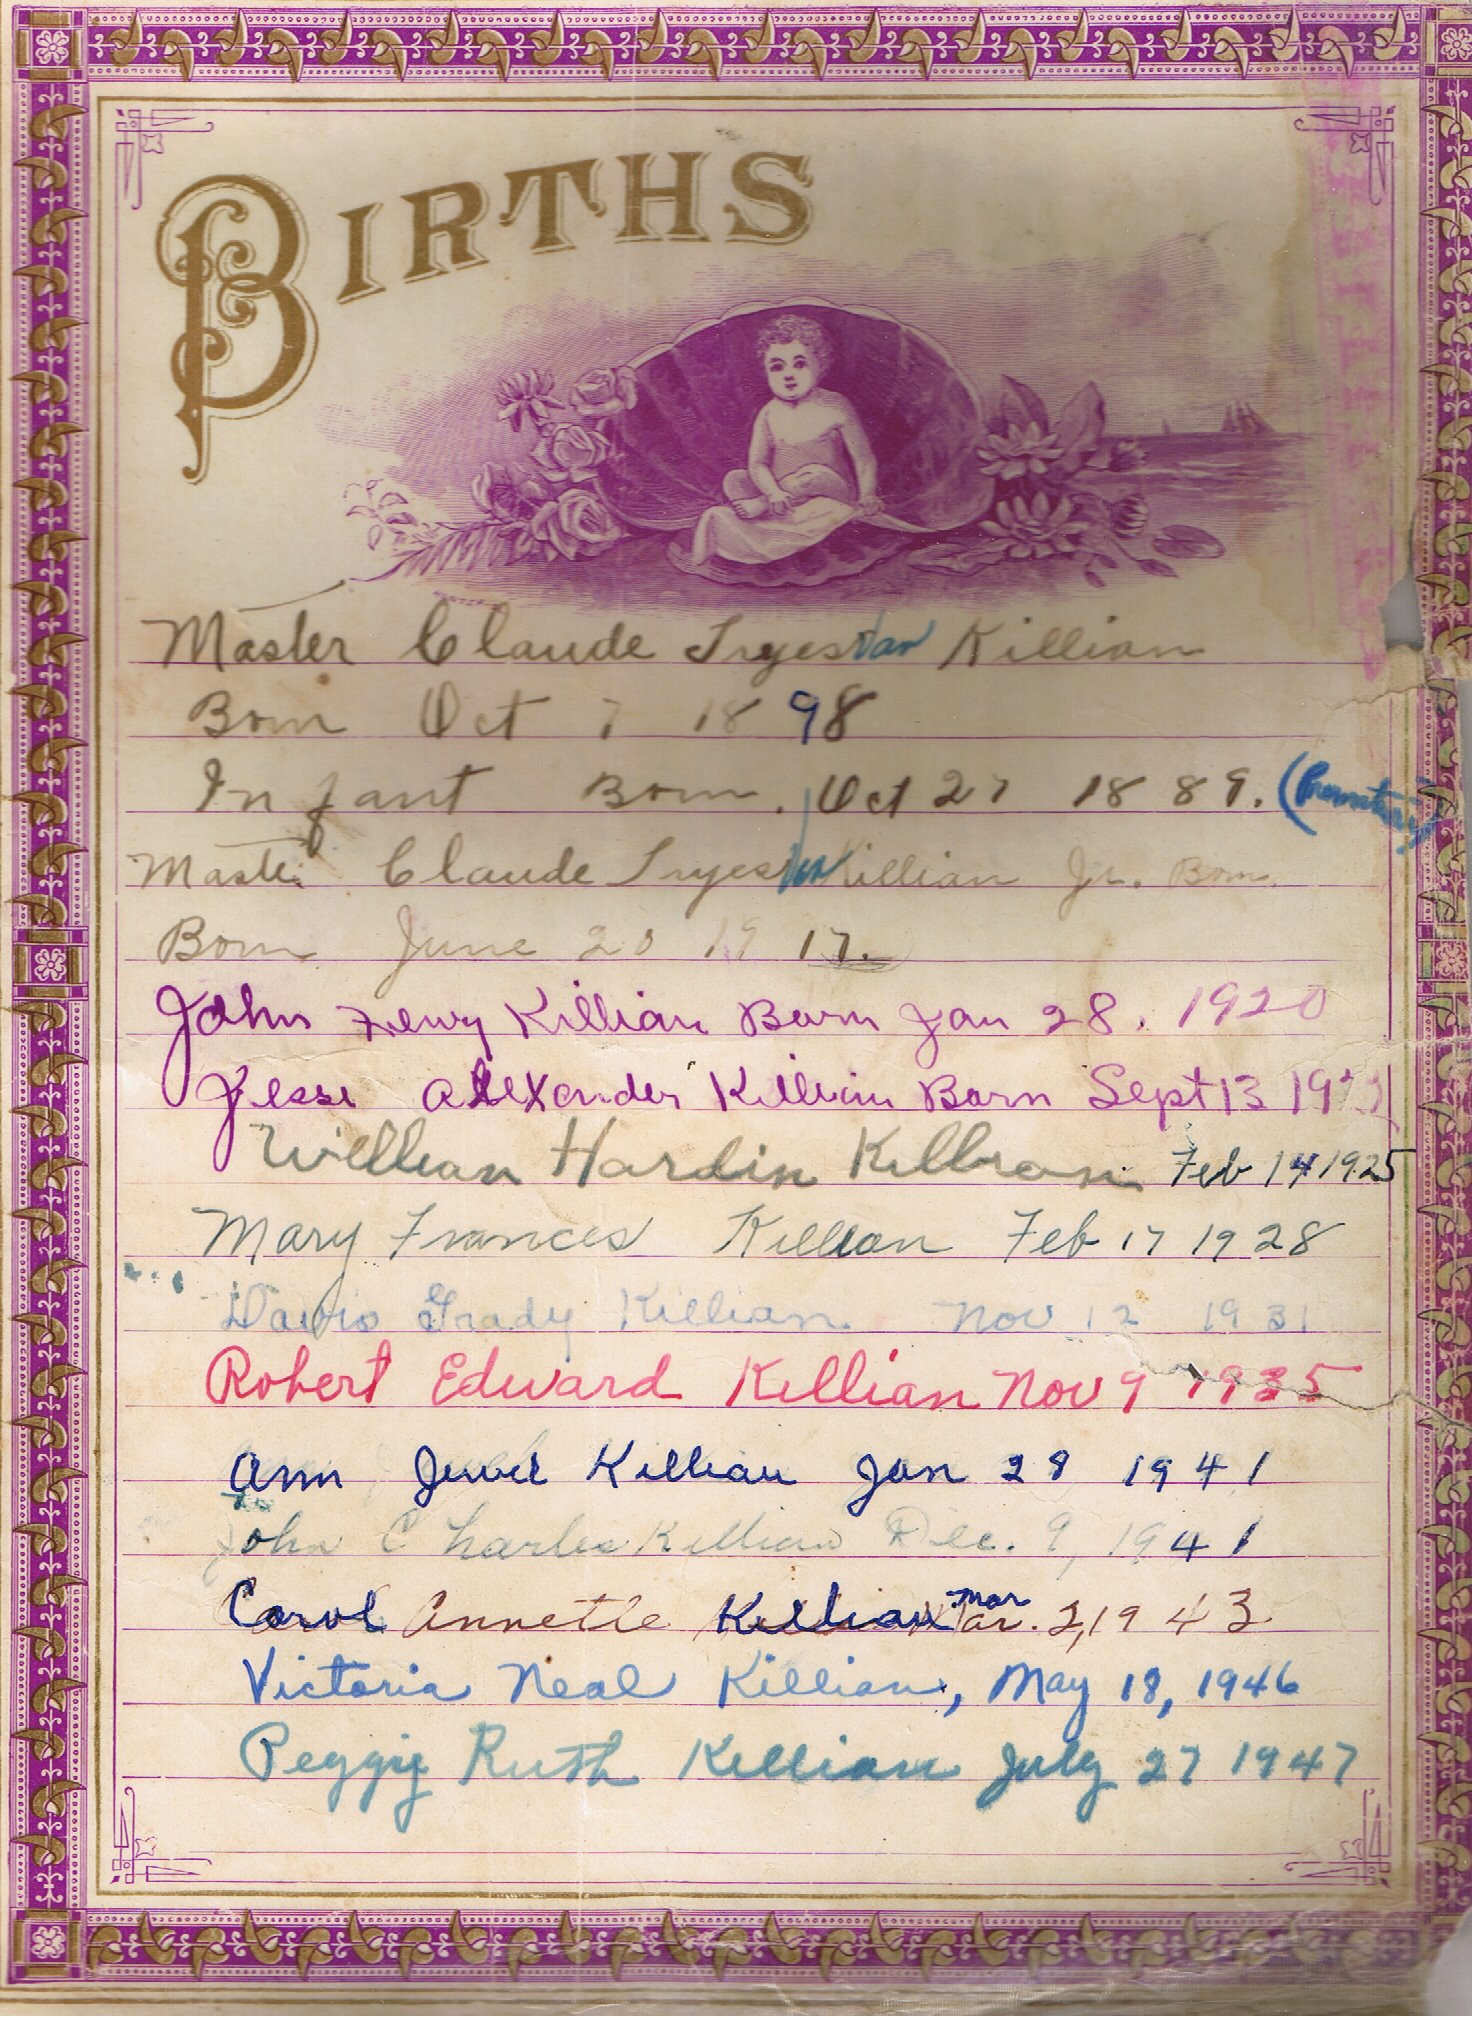 BIRTHS
Master Claude Tryesvan Killian
Born Oct 7 1898
Infant Born. Oct 27 1889.
Master Claude Killian Jr. Born
Born June 20 1917.
John Henry Killian Born Jan 28. 1920
Jesse Alexander Killian Born Sept 13 19
William Hardin Killian Feb 14 1925
Mary Frances Killian Feb 17 1928
Grady Killian Nov 12 1931
Robert Edward Killian Nov 9 1935
Ann Jewel Killian Jan 28 1941
John Charles Killian Dec. 9, 1941
Carol Annette Killian Mar Mar. 2, 1943
Victoria Neal Killian, May 18, 1946
Peggy Ruth Killian July 27 1947